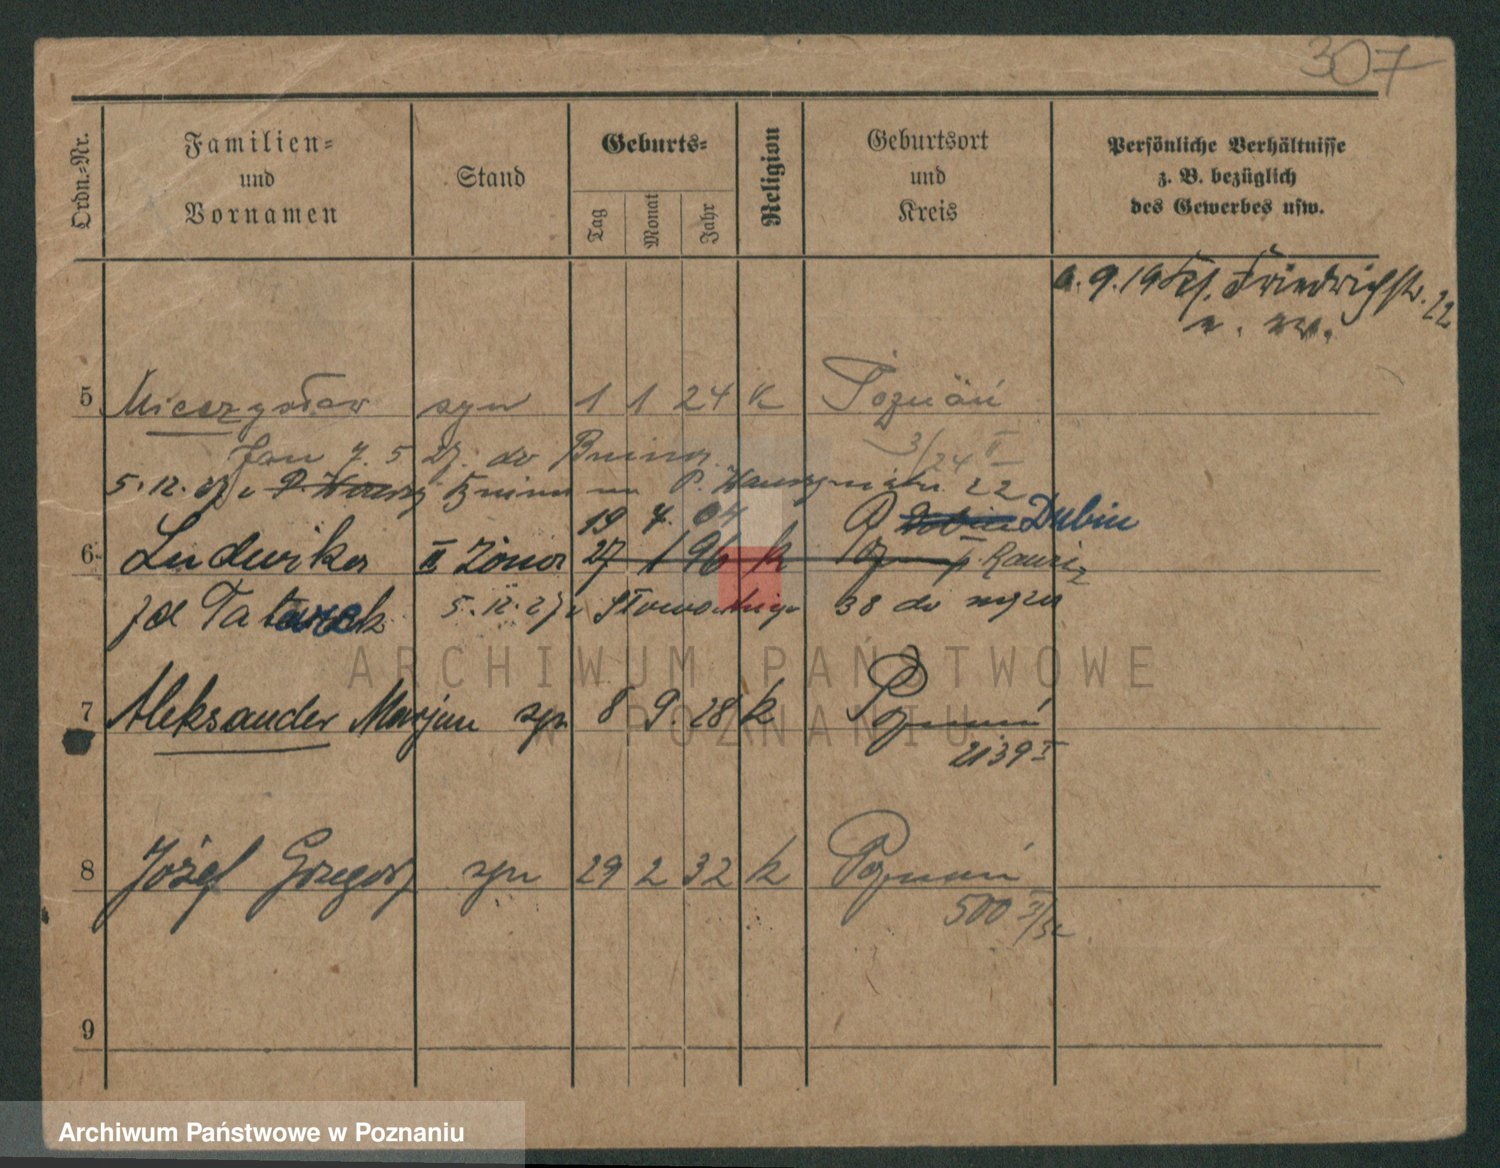 307
Ordn.-Nr.
Familien-
und
Vornamen
Stand
Geburts-
Tag
Monat
Jahr
Religion
Geburtsort
und
Kreis
Persönliche Verhältnisse
z. B. bezüglich
des Gewerbes usw.
9. 19 Friedrichstr. 22
5 Mieczysław syn 1 1 24 k Poznań
Jan 7. 5 27. do Bnina 3/24 II
5. 12. 27 Bnina P. 22
19 4. 04 Dubin
6 Ludwika II żona 27 1 96 k Poz Rawicz
zd Tatarek 5. 12. 27 z Słowackiego 38 do męża
7 Aleksander Marjan syn 8 9. 28 k Poznań
2139 I
8 Józef Grzegorz syn 29 2 32 k Poznań
500 II/32
9
ARCHIWUM PAŃSTWOWE
W POZNANIU
Archiwum Państwowe w Poznaniu